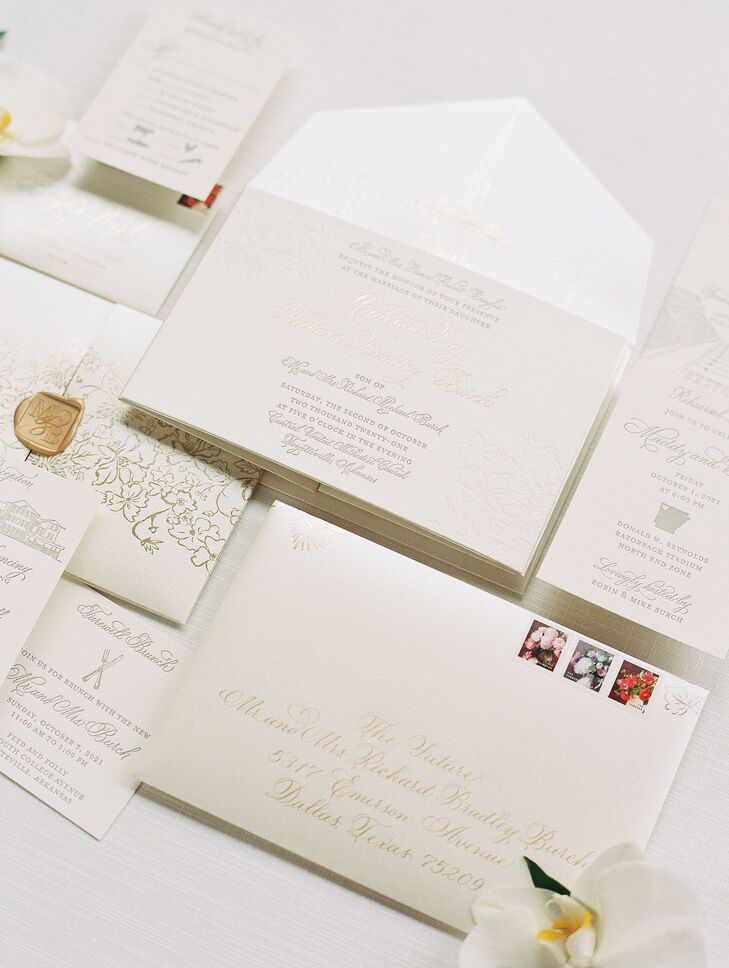 Mr. and Mrs. Daniel Robert Beyler
REQUEST THE HONOUR OF YOUR PRESENCE
AT THE MARRIAGE OF THEIR DAUGHTER
Madison Kay
Richard Bradley Burch
SON OF
Mr. and Mrs. Richard Michael Burch
SATURDAY, THE SECOND OF OCTOBER
TWO THOUSAND TWENTY-ONE
AT FIVE O'CLOCK IN THE EVENING
Central United Methodist Church
Fayetteville, Arkansas
Rehearsal
JOIN US TO CEL
Maddy and
FRIDAY
OCTOBER 1, 2021
AT 6:00 PM
DONALD W. REYNOLDS
RAZORBACK STADIUM
NORTH END ZONE
Lovingly hosted by
ROBIN & MIKE BURCH
eption
ncing
Farewell Brunch
JOIN US FOR BRUNCH WITH THE NEW
Mr. and Mrs. Burch
SUNDAY, OCTOBER 3, 2021
11:00 AM TO 1:00 PM
FEED AND FOLLY
SOUTH COLLEGE AVENUE
TTEVILLE, ARKANSAS
The Future
Mr. and Mrs. Richard Bradley Burch
5317 Emerson Avenue
Dallas, Texas 75209